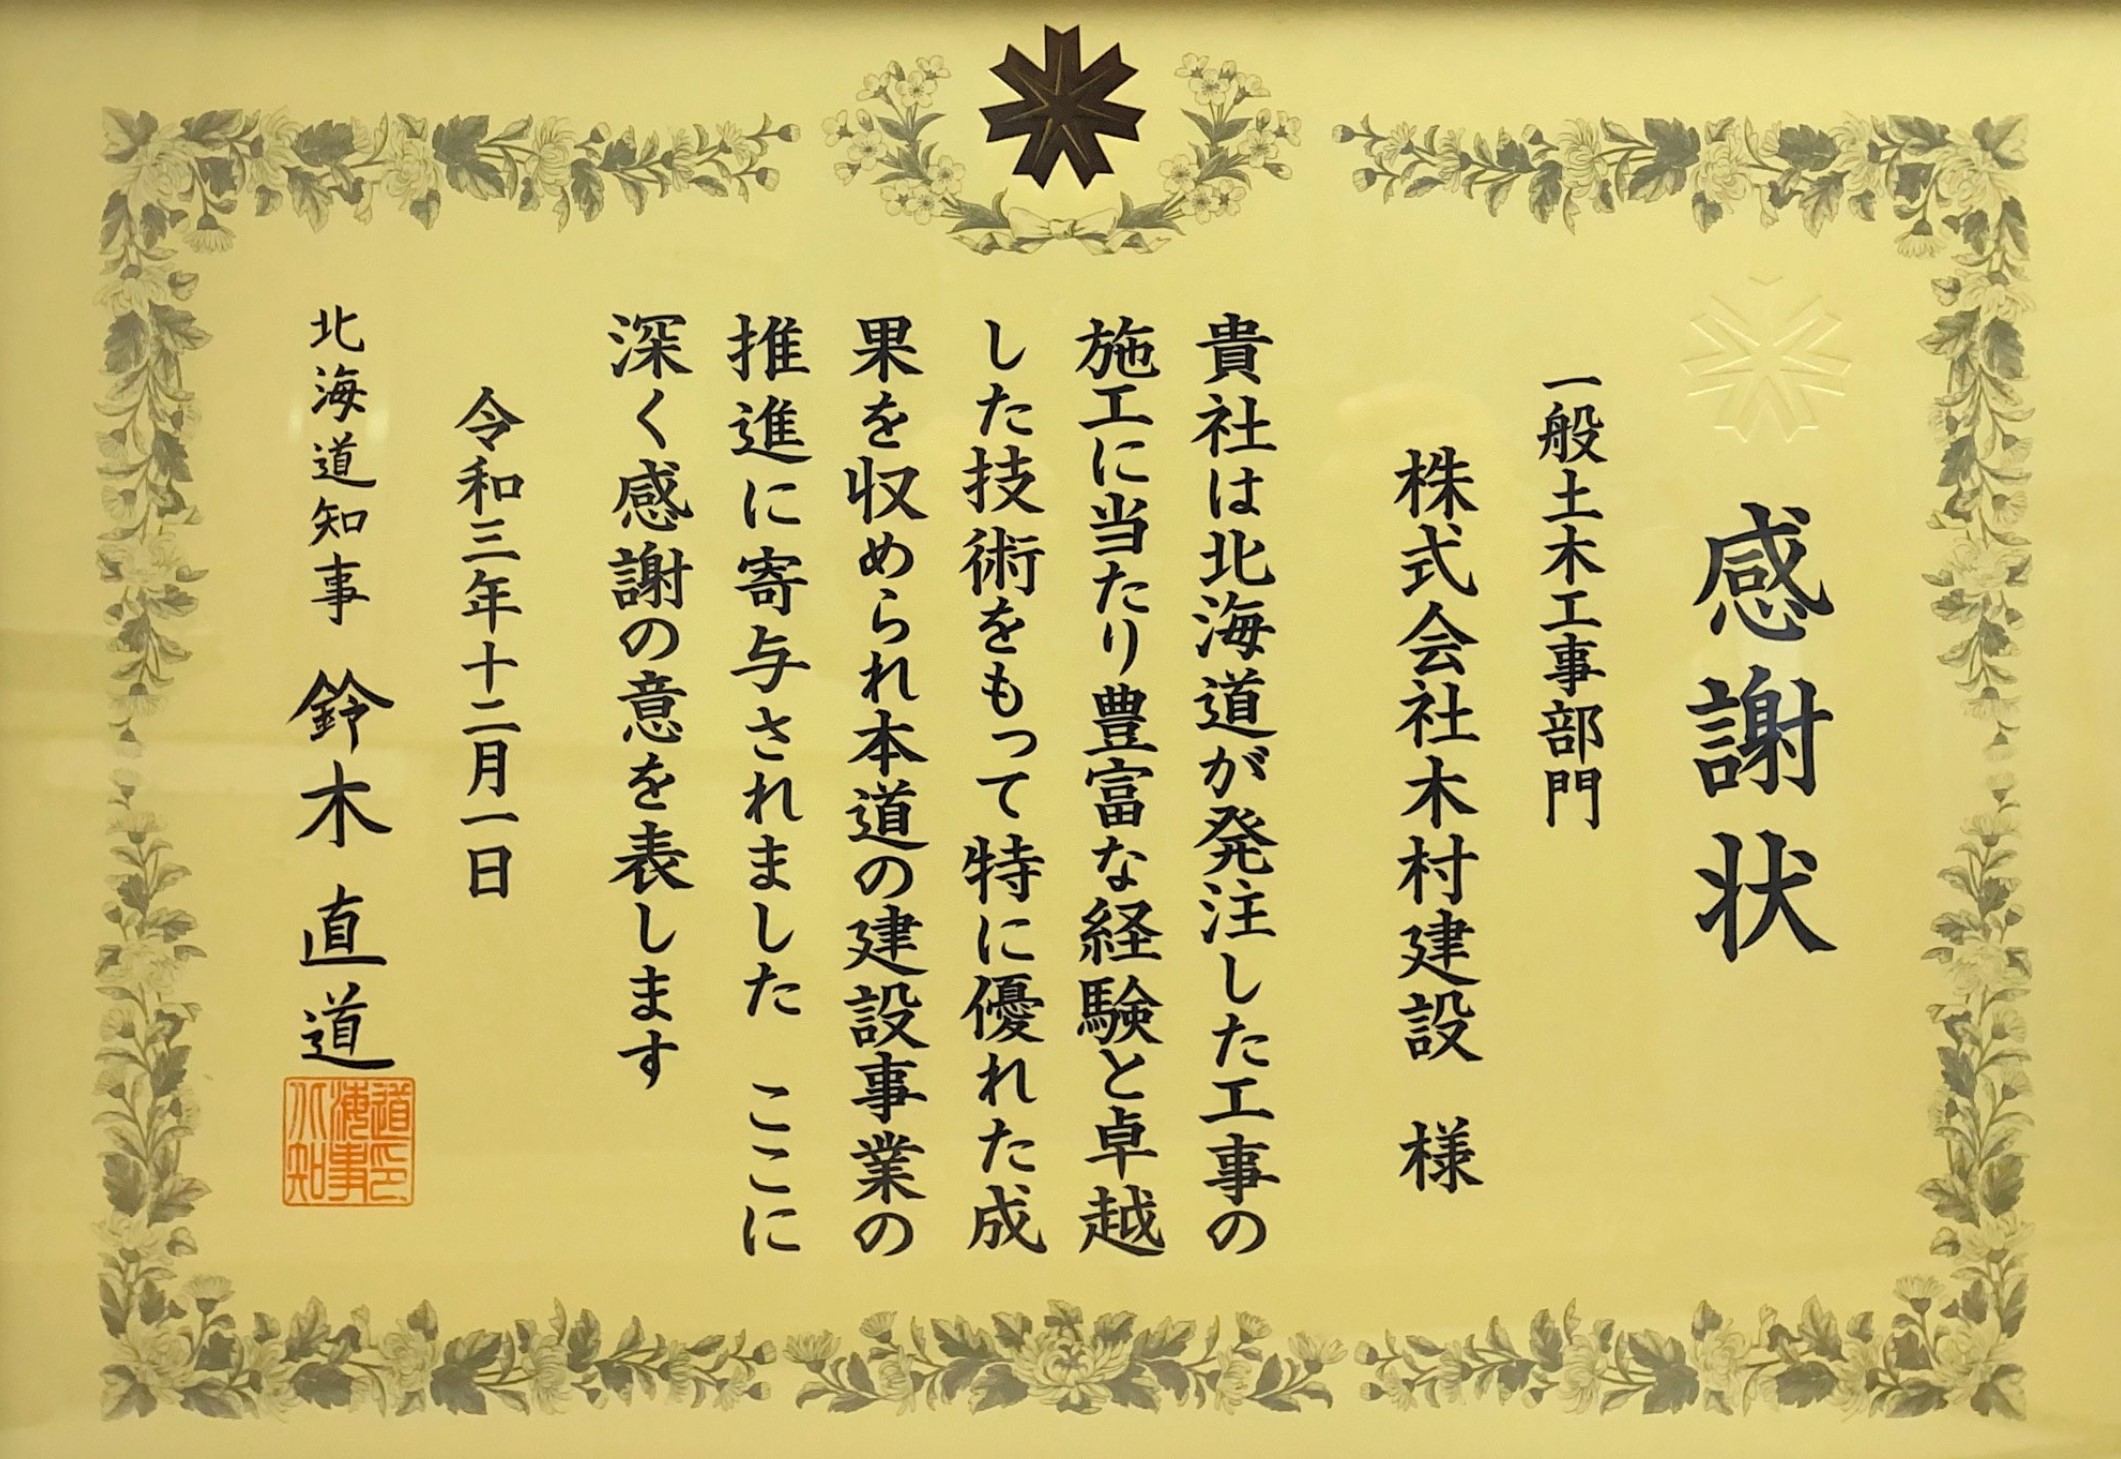 感謝状
一般土木工事部門
株式会社木村建設 様
貴社は北海道が発注した工事の
施工に当たり豊富な経験と卓越
した技術をもって特に優れた成
果を収められ本道の建設事業の
推進に寄与されました ここに
深く感謝の意を表します
令和三年十二月一日
北海道知事 鈴木直道
北海道知事印